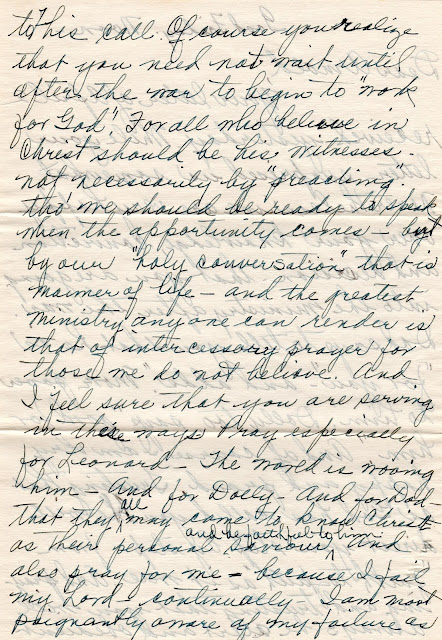 to His call Of course you realize
that you need not wait until
after the war to begin to "work
for God". For all who believe in
Christ should be his witnesses.
not necessarily by "preaching".
tho we should be ready to speak
when the opportunity comes - but
by our "holy conversation" that is
manner of life - and the greatest
ministry anyone can render is
that of intercessory prayer for
those who do not believe. And
I feel sure that you are serving
in these ways Pray especially
for Leonard - The world is wooing
him - And for Dolly - And for Dad
that they all may come to know Christ
as their personal Saviour, and be faithful to him And
also pray for me - because I fail
my Lord continually - I am most
poignantly aware of my failure as